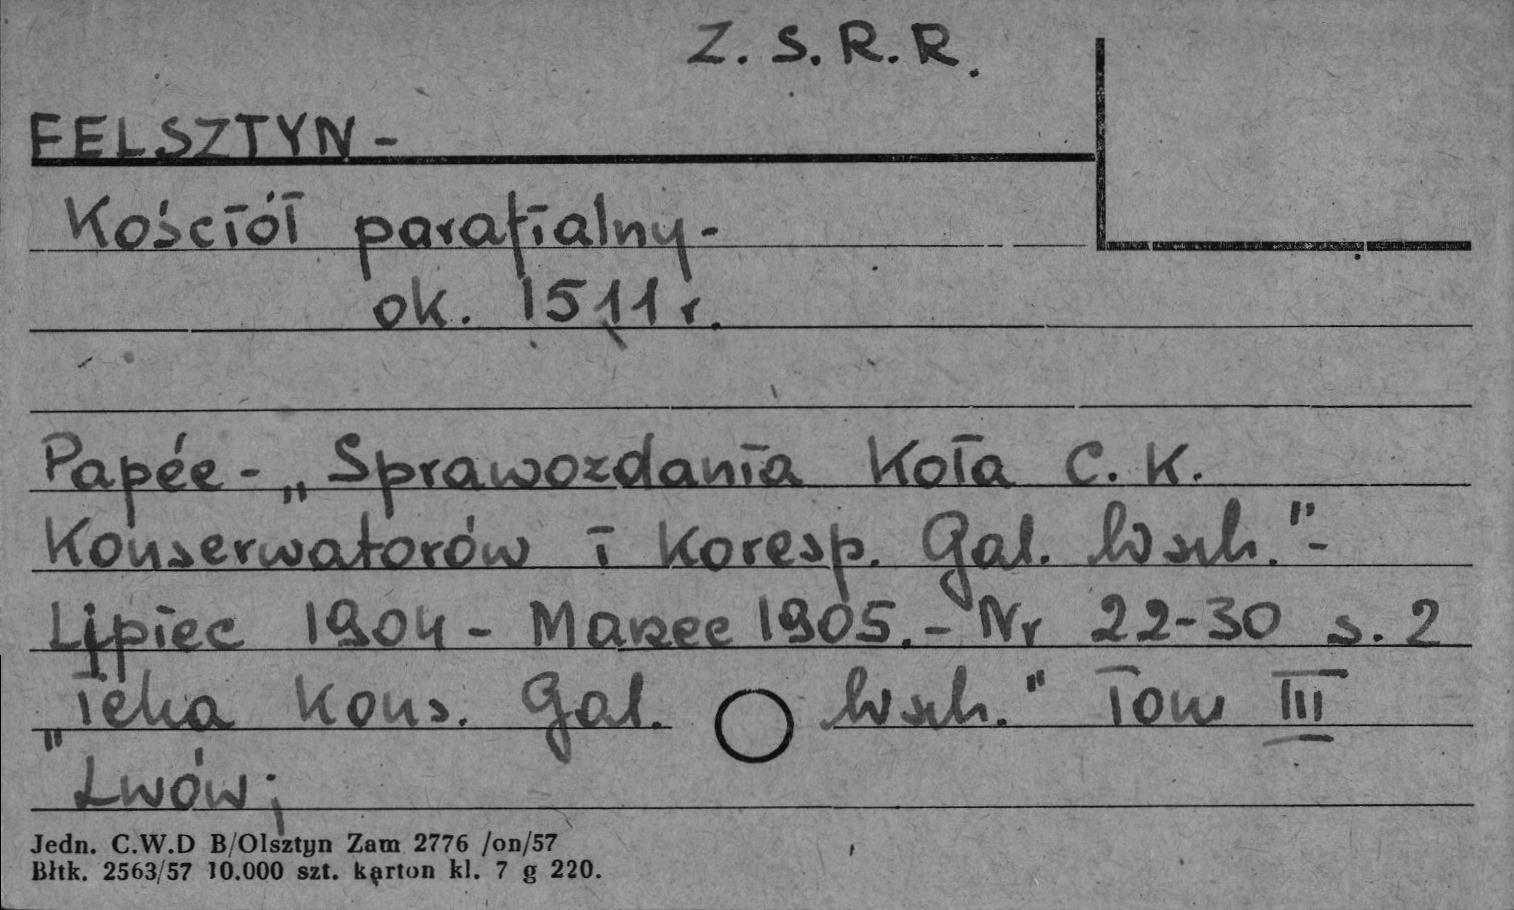 Z. S. R. R.
FELSZTYN -
Kościół parafialny -
ok. 1511 r.
Papée - „Sprawozdania Koła C. K.
Konserwatorów i Koresp. Gal. Wsch." -
Lipiec 1904 - Marzec 1905. - Nr 22-30 s. 2
„Teka Kons. Gal. Wsch." Tom III
Lwów;
Jedn. C.W.D B/Olsztyn Zam 2776 /on/57
Błtk. 2563/57 10.000 szt. karton kl. 7 g 220.